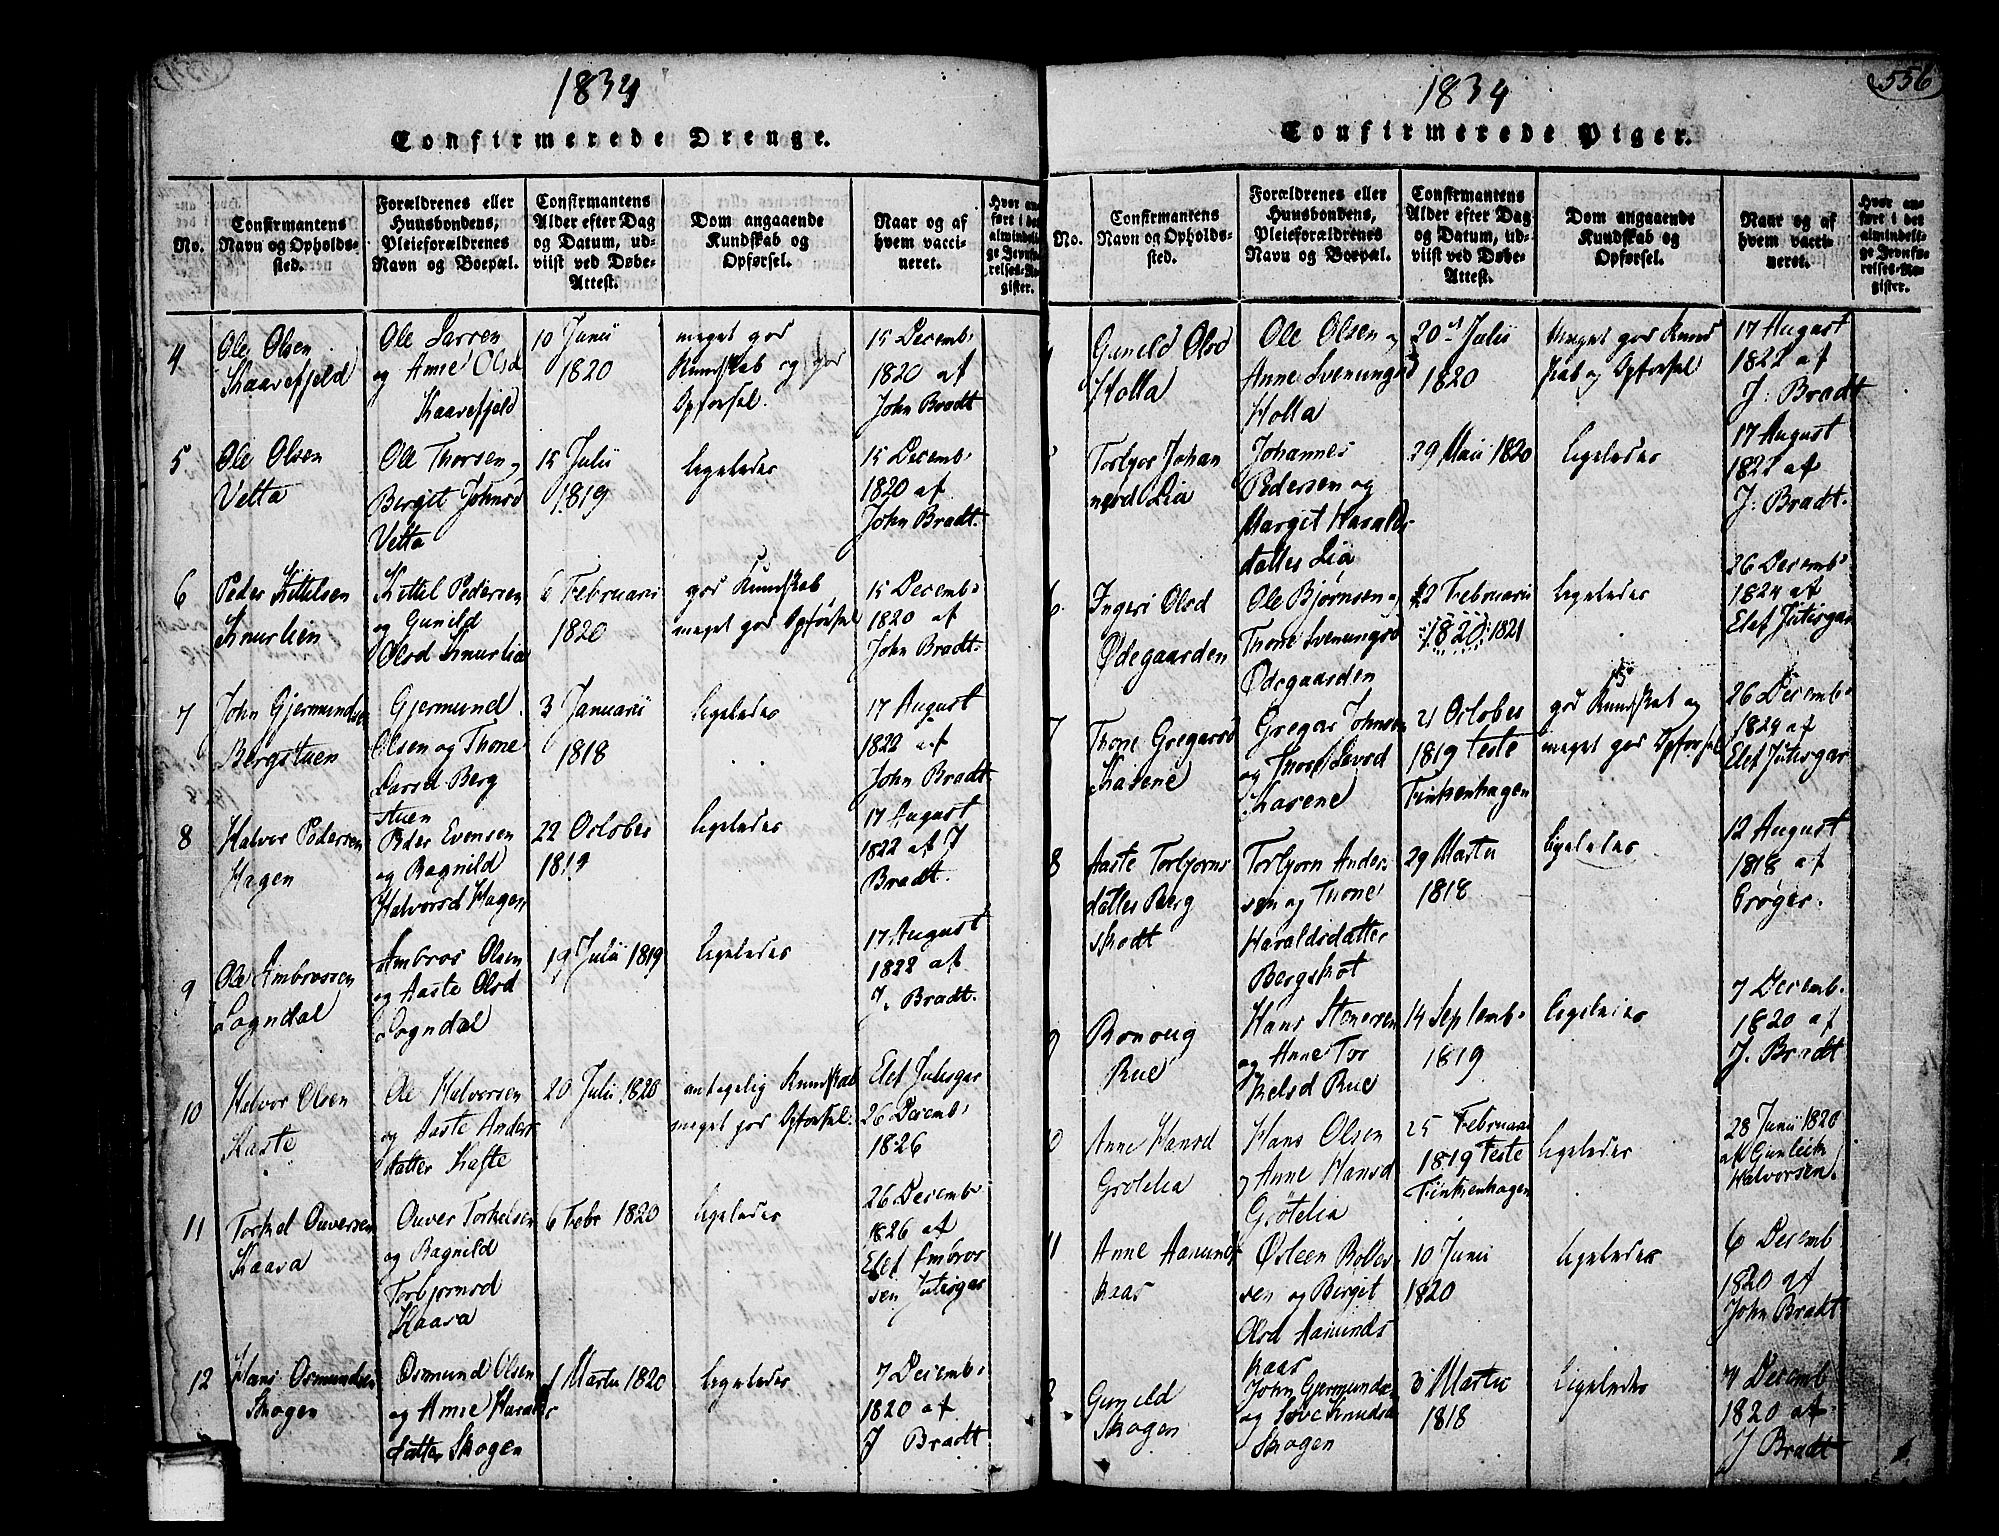 1834
Confirmerede Drenge.
No.
Confirmantens
Navn og Opholds-
sted.
Forældrenes eller
Huusbondens,
Pleieforældrenes
Navn og Boepæl.
Confirmantens
Alder efter Dag
og Datum, ud-
viist ved Døbe-
Attest.
Dom angaaende
Kundskab og
Opførsel.
Naar og af
hvem vacci-
neret.
Hvor an-
ført i det
almindeli-
ge Jevnfø-
relses-Re-
gister.
4
Ole Olsen
Skaarefjeld
Ole Larsen
og Anne Olsd
Kaarefjeld
10 Junii
1820
meget god
Kundskab og
Opførsel.
15 Decemb:
1820 af
John Bradt
5
Ole Olsen
Vetta
Ole Thorsen og
Bergit Johnsd
Vetta
15 Julii
1819
ligeledes
15 Decemb:
1820 af
John Bradt.
6
Peder Kittilsen
Knurlien
Kittil Pedersen
og Gunild
Olsd Knurlia
6 Februarii
1820
god Kundskab
meget god Opførsel
15 Decemb:
1820 af
John Bradt.
7
John Gjermundsen
Bergstuen
Gjermund
Olsen og Thone
Larsd Berg
stuen
3 Januarii
1818
ligeledes
17 August
1822 af
John Bradt
8
Halvor Pedersen
Hagen
Peder Evensen
og Ragnild
Halvorsd Hagen
22 October
1819
ligeledes
17 August
1822 af J
Bradt.
9
Ole Ambrossen
Sogndal
Ambros Olsen
og Aaste Olsd
Sogndal
19 Julii 1819
ligeledes
17 August
1822 af
J. Bradt.
10
Halvor Olsen
Kaste
Ole Halvorsen
og Aaste Anders
datter Kaste
20 Julii 1820
antagelig Kundskab
meget god Opførsel.
Elef Jutisgar
26 Decemb:
1826
11
Torkel Ouversen
Kaasa
Ouver Torkelsen
og Ragnild
Torbjornsd
Kaasa
6 Febr 1820
ligeledes
26 Decemb:
1826 af
Elef Ambros
sen Jutisgar
12
Hans Osmundsen
Skogen
Osmund Olsen
og Anne Haralds
datter Skogen
1 Martii 1820
ligeledes
7 Decemb:
1820 af
J Bradt
1834
556
Confirmerede Piger.
No.
Confirmantens
Navn og Opholds-
sted.
Forældrenes eller
Huusbondens,
Pleieforældrenes
Navn og Boepæl.
Confirmantens
Alder efter Dag
og Datum, ud-
viist ved Døbe-
Attest.
Dom angaaende
Kundskab og
Opførsel.
Naar og af
hvem vacci-
neret.
Hvor an-
ført i det
almindeli-
ge Jevnfø-
relses-Re-
gister.
Gunild Olsd
Holla
Ole Olsen og
Anne Svenungsd
Holla
20 Julii
1820
Meget god Kund
skab og Opførsel
17 August
1822 af
J: Bradt
Torbjor Johan
nesd Lia
Johannes
Pedersen og
Margit Haralds
datter Lia
29 Maii 1820
ligeledes
17 August
1822 af
J: Bradt.
6
Ingeri Olsd
Ødegaarden
Ole Bjørnsen og
Thone Svenungsd
Ødegaarden
22 Februarii
1820 1821
ligeledes
26 Decemb:
1824 af
Elef Jutisgar
7
Thone Gregarsd
Kasene
Gregar Johnsen
og
Kasene
21 October
1819 teste
Finkenhagen
god Kundskab og
meget god Opførsel
26 Decemb:
1824 af
Elef Jutisgar
8
Aaste Torbjorns
datter Berg
skodt
Torbjorn Ander
sen og Thone
Haraldsdatter
Bergskot
29 Martii
1818
ligeledes
12 August
1818 af
Crøger.
9
Ronoug
Rue
Hans Stenersen
og Anne Tor
kelsd Rue
14 Septemb:
1819
ligeledes
7 Decemb.
1820 af
J. Bradt
0
Anne Hansd
Grotelia
Hans Olsen
og Anne Hansd
Grotelia
25 Februarii
1819 teste
Finkenhagen
ligeledes
28 Junii 1820
af Gunleik
Halvorsen.
11
Anne Aamunds
kaas
Østeen Rolles
sen og Birgit
Olsd Aamunds
kaas
10 Junii
1820
ligeledes
6 Decemb
1820 af
John Bradt
Gunild
Skogen
John Gjermunds
og Live Knudsd
Skogen
3 Martii
1818
ligeledes
7 Decemb
1820 af
J Bradt